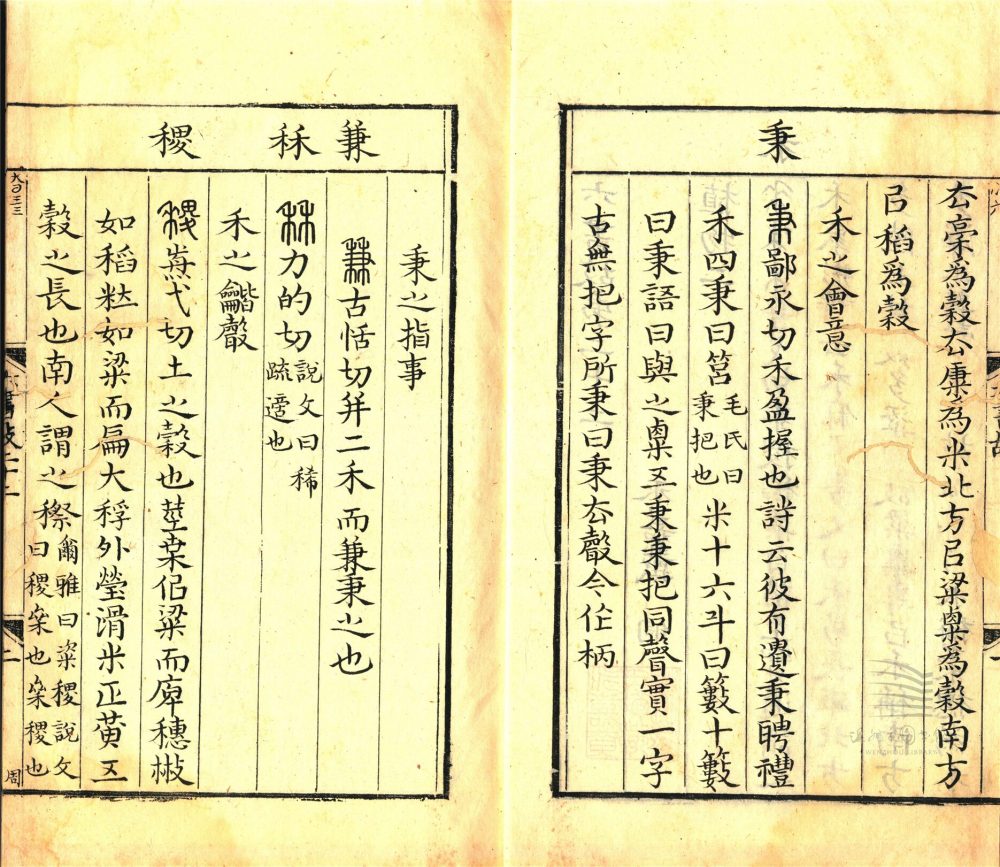 秉
厺稾爲穀厺康爲米北方㠯粱粟爲穀南方
㠯稻爲穀
禾之會意
秉鄙永切禾盈握也詩云彼有遺秉聘禮
禾四秉曰筥毛氏曰秉把也米十六斗曰籔十籔
曰秉語曰與之粟𠄡秉秉把同聲實一字
古無把字所秉曰秉厺聲今作柄
兼 秝 稷
秉之指事
兼古恬切并二禾而兼秉之也
秝力的切說文曰稀疏適也
禾之龤聲
稷弋切土之穀也莖葉佀粱而穗
如稻粒如粱而扁大稃外瑩滑米正黃𠄡
穀之長也南人謂之穄爾雅曰粢稷說文曰稷粢也粢稷也
二
周